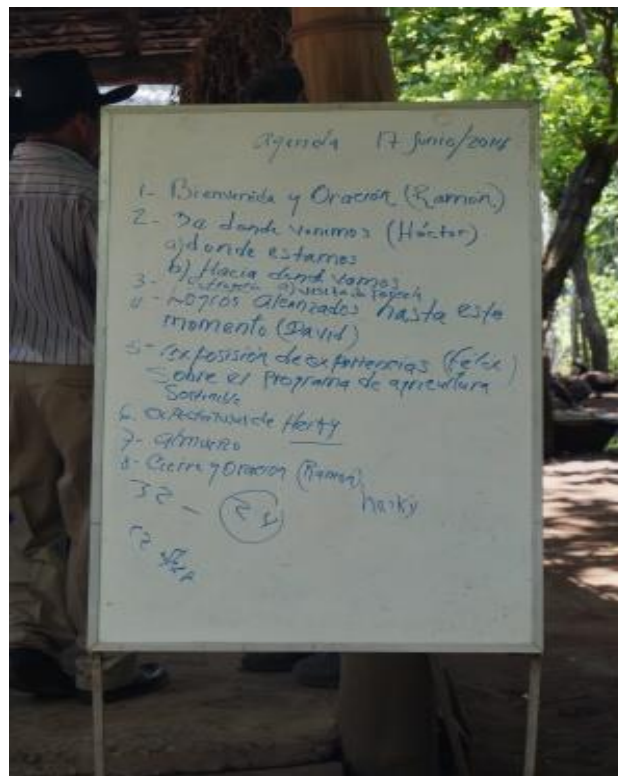 agenda 17 Junio/2014
1- Bienvenida y Oración (Ramón)
2- De donde venimos (Héctor)
a) donde estamos
b) Hacia dond vamos
3-
4- Logros alcanzados hasta este
momento (David)
5- exposisión de experiencias (Felix)
Sobre el programa de agricultura
Sostenible
6. expectativas de Herty
7- almuerzo
8- Cierre y Oración (Ramón)
32 - 24